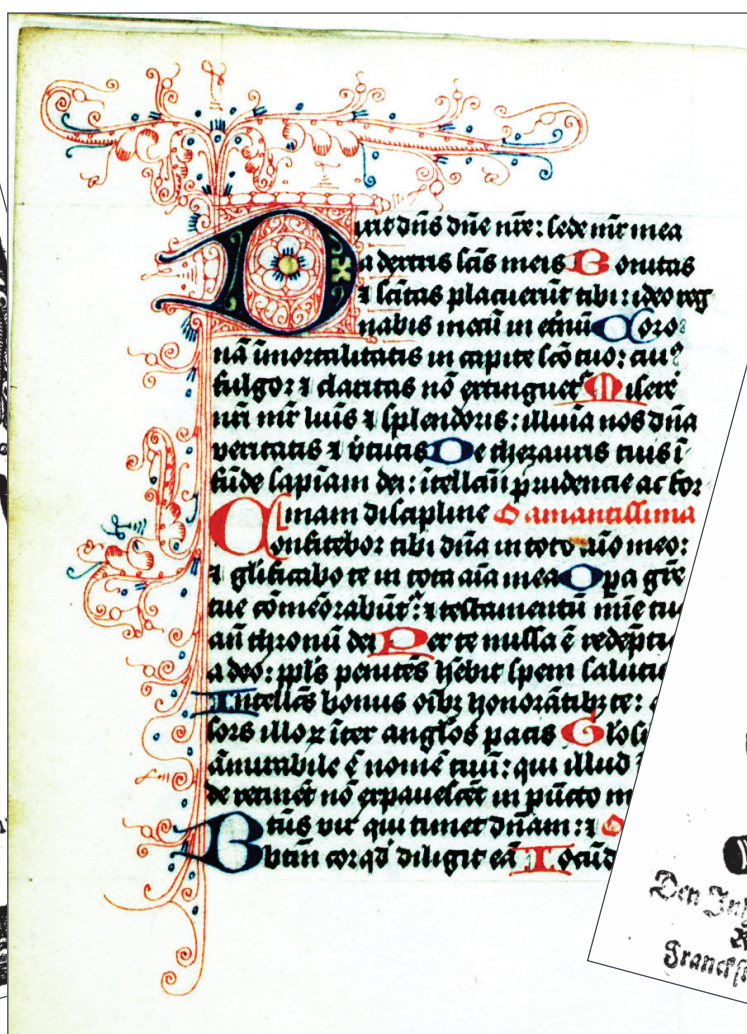 Dixit dn̄s dn̄e nr̄e: sede mr̄ mea
a dextris sc̄is meis Bonitas
⁊ sc̄itas placuerūt tibi: ideo reg
nabis mecū in etnū Coro
nā īmortalitatis in capite sc̄o tuo: cui⁹
fulgor ⁊ claritas nō extinguet᷑ Misere
nr̄i mr̄ luīs ⁊ splendoris: illuīa nos dn̄a
veritatis ⁊ v̄tutis De thezauris tuis ī
fūde sapiam dei: ītellcū prudencie ac for
mam discipline O amantissima
Confitebor tibi dn̄a in toto meo:
⁊ glīficabo te in tota aīa mea Opa grē
tue cōmeōrabūt᷑: ⁊ testamentū mīe tu
an̄ thronū dei Per te nulla ē redēptı
a deo: ppl̄s penitēs hēbit spem saluti
Intellc̄s bonus oībꝫ honorātibꝫ te:
sors illoꝝ īter angl̄os pacis Glosi
āmirabile ē nomē tuū: qui illud
de retinēt nō expavescēt in pūcto m
Btūs vir qui timet dn̄am: ⁊
bn̄tm cor qd̄ diligit eā Iocūd
Den
Franckf